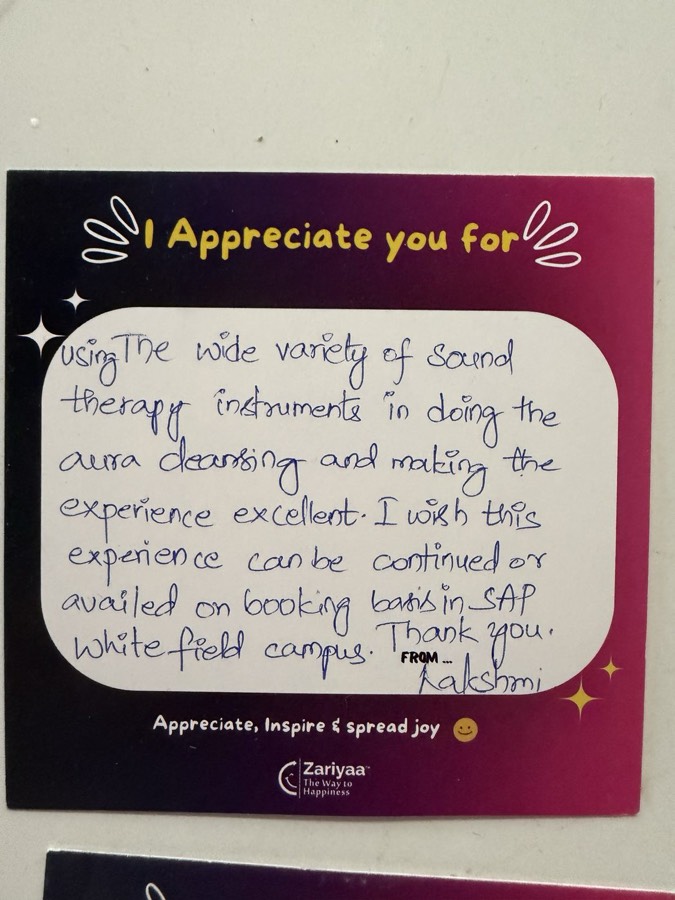 I Appreciate you for
using The wide variety of Sound
therapy instruments in doing the
aura cleansing and making the
experience excellent. I wish this
experience can be continued or
availed on booking basis in SAP
Whitefield campus. Thank you.
FROM ...
Lakshmi
Appreciate, Inspire & spread joy
Zariyaa™
The Way to
Happiness